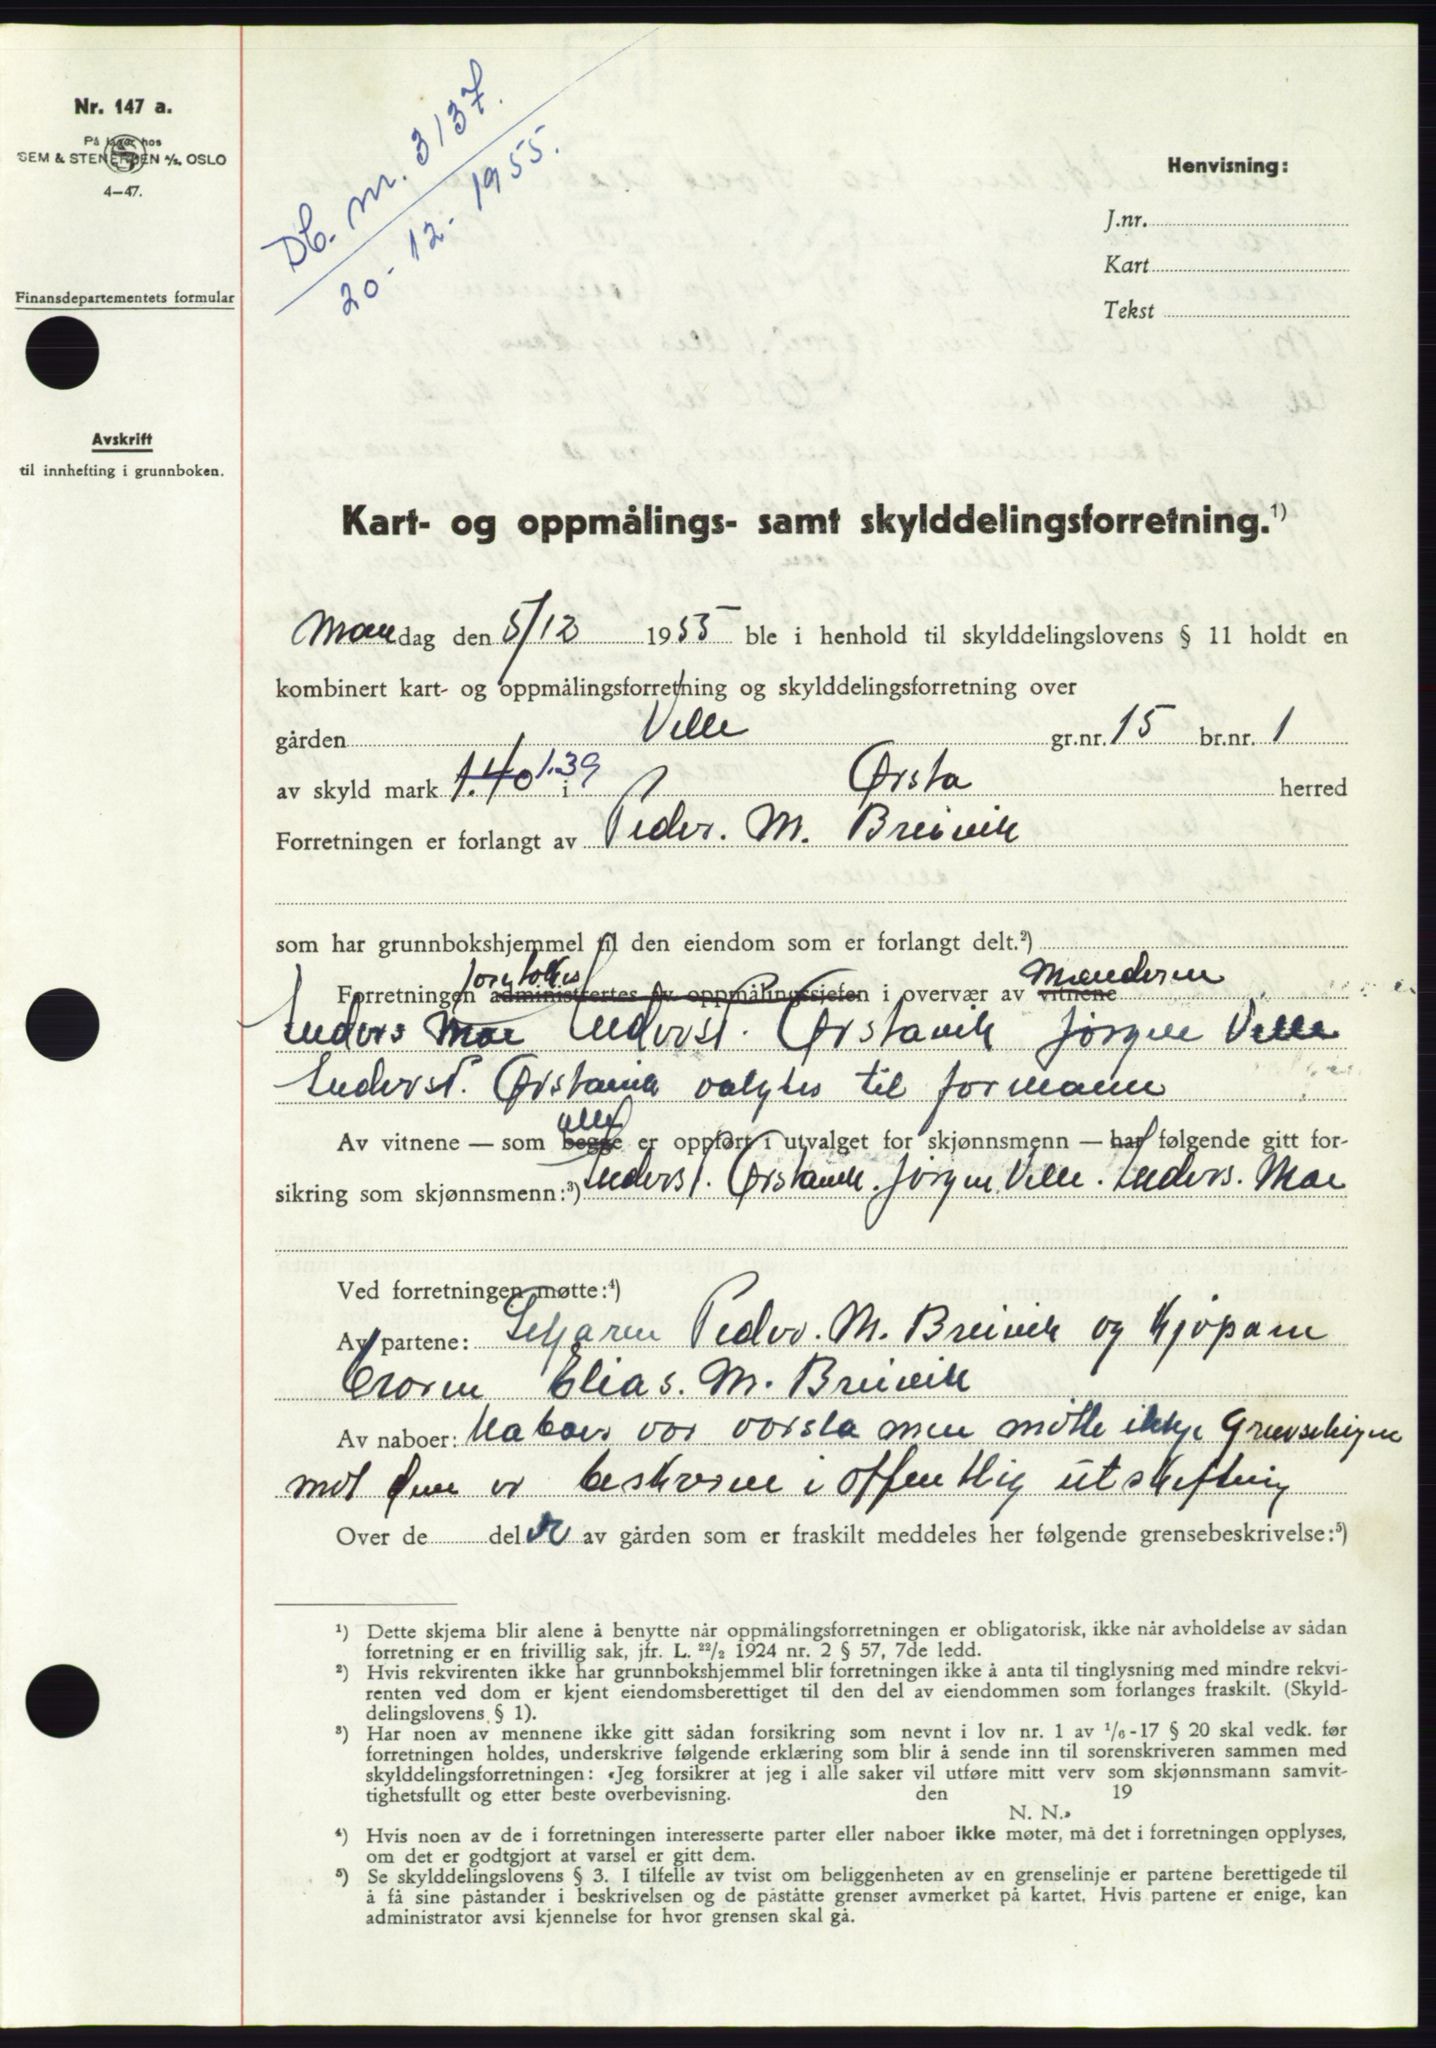 Nr. 147 a.
På lager hos
SEM & STENERSEN A/S, OSLO
4-47.
Finansdepartementets formular
Avskrift
til innhefting i grunnboken.
Db. nr. 3137.
20-12-1955.
Henvisning:
J.nr.
Kart
Tekst
Kart- og oppmålings- samt skylddelingsforretning.¹)
Mandag den 5/12 1955 ble i henhold til skylddelingslovens § 11 holdt en
kombinert kart- og oppmålingsforretning og skylddelingsforretning over
gården Velle gr.nr. 15 br.nr. 1
av skyld mark 1.40 1.39 i Ørsta herred
Forretningen er forlangt av Peder. M. Breivik
som har grunnbokshjemmel til den eiendom som er forlangt delt.²)
Forretningen administrertes av oppmålingssjefen i overvær av vitnene Mendern
Anders Moe Anders T. Ørstavik Jørgen Velle
Anders T. Ørstavik valgtes til formann
Av vitnene — som begge alle er oppført i utvalget for skjønnsmenn — har følgende gitt for-
sikring som skjønnsmenn:³) Anders T. Ørstavik. Jørgen Velle. Anders. Moe
Ved forretningen møtte:⁴)
Av partene: Seljaren Peder. M. Breivik og Kjøparen
Elias. M. Breivik
Av naboer: Naboer var varsla men møtte ikkje
mot er i offentlig utskiftning
Over de del av gården som er fraskilt meddeles her følgende grensebeskrivelse:⁵)
¹) Dette skjema blir alene å benytte når oppmålingsforretningen er obligatorisk, ikke når avholdelse av sådan
forretning er en frivillig sak, jfr. L. ²²/₂ 1924 nr. 2 § 57, 7de ledd.
²) Hvis rekvirenten ikke har grunnbokshjemmel blir forretningen ikke å anta til tinglysning med mindre rekvi-
renten ved dom er kjent eiendomsberettiget til den del av eiendommen som forlanges fraskilt. (Skyld-
delingslovens § 1).
³) Har noen av mennene ikke gitt sådan forsikring som nevnt i lov nr. 1 av ¹/₆-17 § 20 skal vedk. før
forretningen holdes, underskrive følgende erklæring som blir å sende inn til sorenskriveren sammen med
skylddelingsforretningen: «Jeg forsikrer at jeg i alle saker vil utføre mitt verv som skjønnsmann samvit-
tighetsfullt og etter beste overbevisning. den 19
N. N.»
⁴) Hvis noen av de i forretningen interesserte parter eller naboer ikke møter, må det i forretningen opplyses,
om det er godtgjort at varsel er gitt dem.
⁵) Se skylddelingslovens § 3. I tilfelle av tvist om beliggenheten av en grenselinje er partene berettigede til
å få sine påstander i beskrivelsen og de påståtte grenser avmerket på kartet. Hvis partene er enige, kan
administrator avsi kjennelse for hvor grensen skal gå.